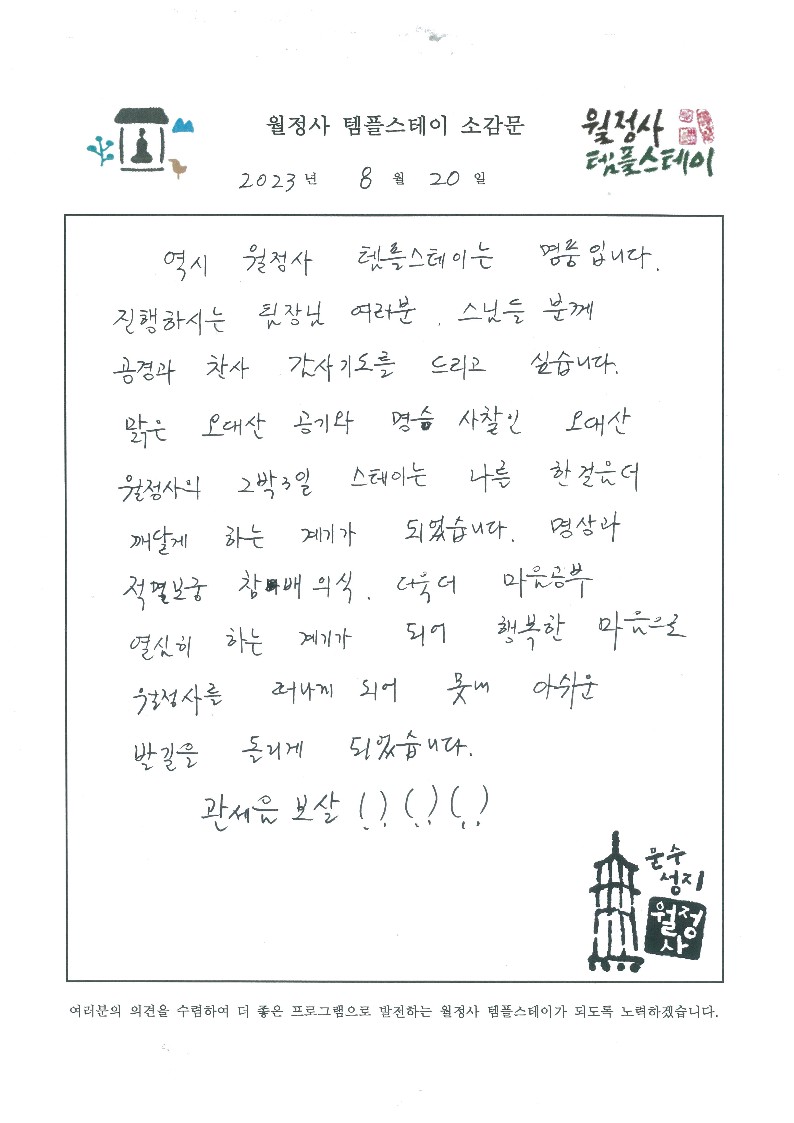 월정사 템플스테이 소감문
월정사
템플스테이
2023년 8월 20일
역시 월정사 템플스테이는 명품입니다.
진행하시는 팀장님 여러분, 스님들 분께
공경과 찬사 감사기도를 드리고 싶습니다.
맑은 오대산 공기와 명승 사찰인 오대산
월정사의 2박3일 스테이는 나를 한걸음더
깨달게 하는 계기가 되었습니다. 명상과
적멸보궁 참배의식. 더욱더 마음공부
열심히 하는 계기가 되어 행복한 마음으로
월정사를 떠나게 되어 못내 아쉬운
발길을 돌리게 되었습니다.
관세음 보살 (!) (!) (!)
문수
성지
월정
사
여러분의 의견을 수렴하여 더 좋은 프로그램으로 발전하는 월정사 템플스테이가 되도록 노력하겠습니다.